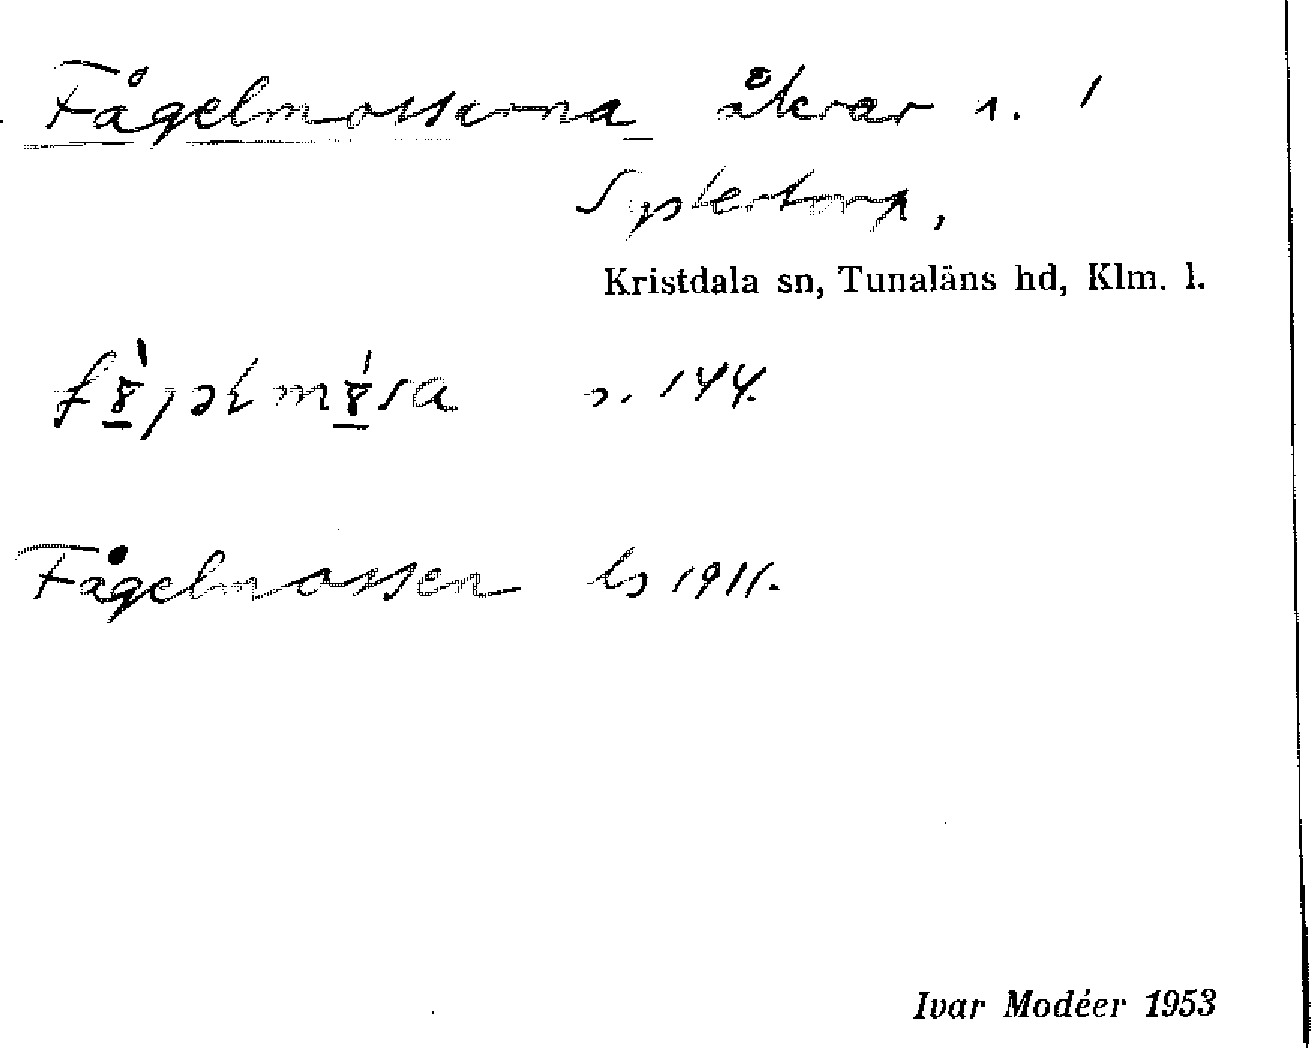 Fågelmossarna åkrar n. 1
Sysslertorp,
Kristdala sn, Tunaläns hd, Klm. l.
n. 144.
Fågelmossen ls 1911.
Ivar Modéer 1953